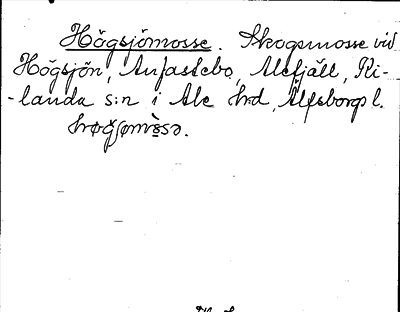 Högsjömosse. Skogsmosse vid
Högsjön, Anfastebo, Alefjäll, Ki-
-landa s:n i Ale hd, Älfsborgs l.